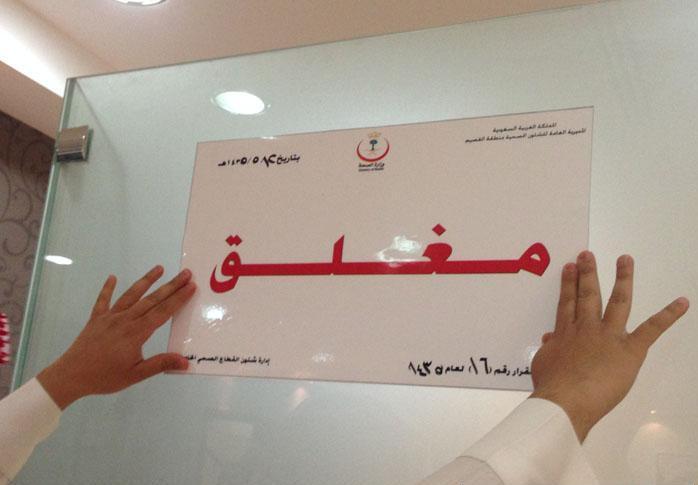 المملكة العربية السعودية
المديرية العامة للشئون الصحية منطقة القصيم
وزارة الصحة
Ministry of Health
مغلق
قرار رقم (١٦) لعام ١٤٣٥
إدارة شئون القطاع الصحي